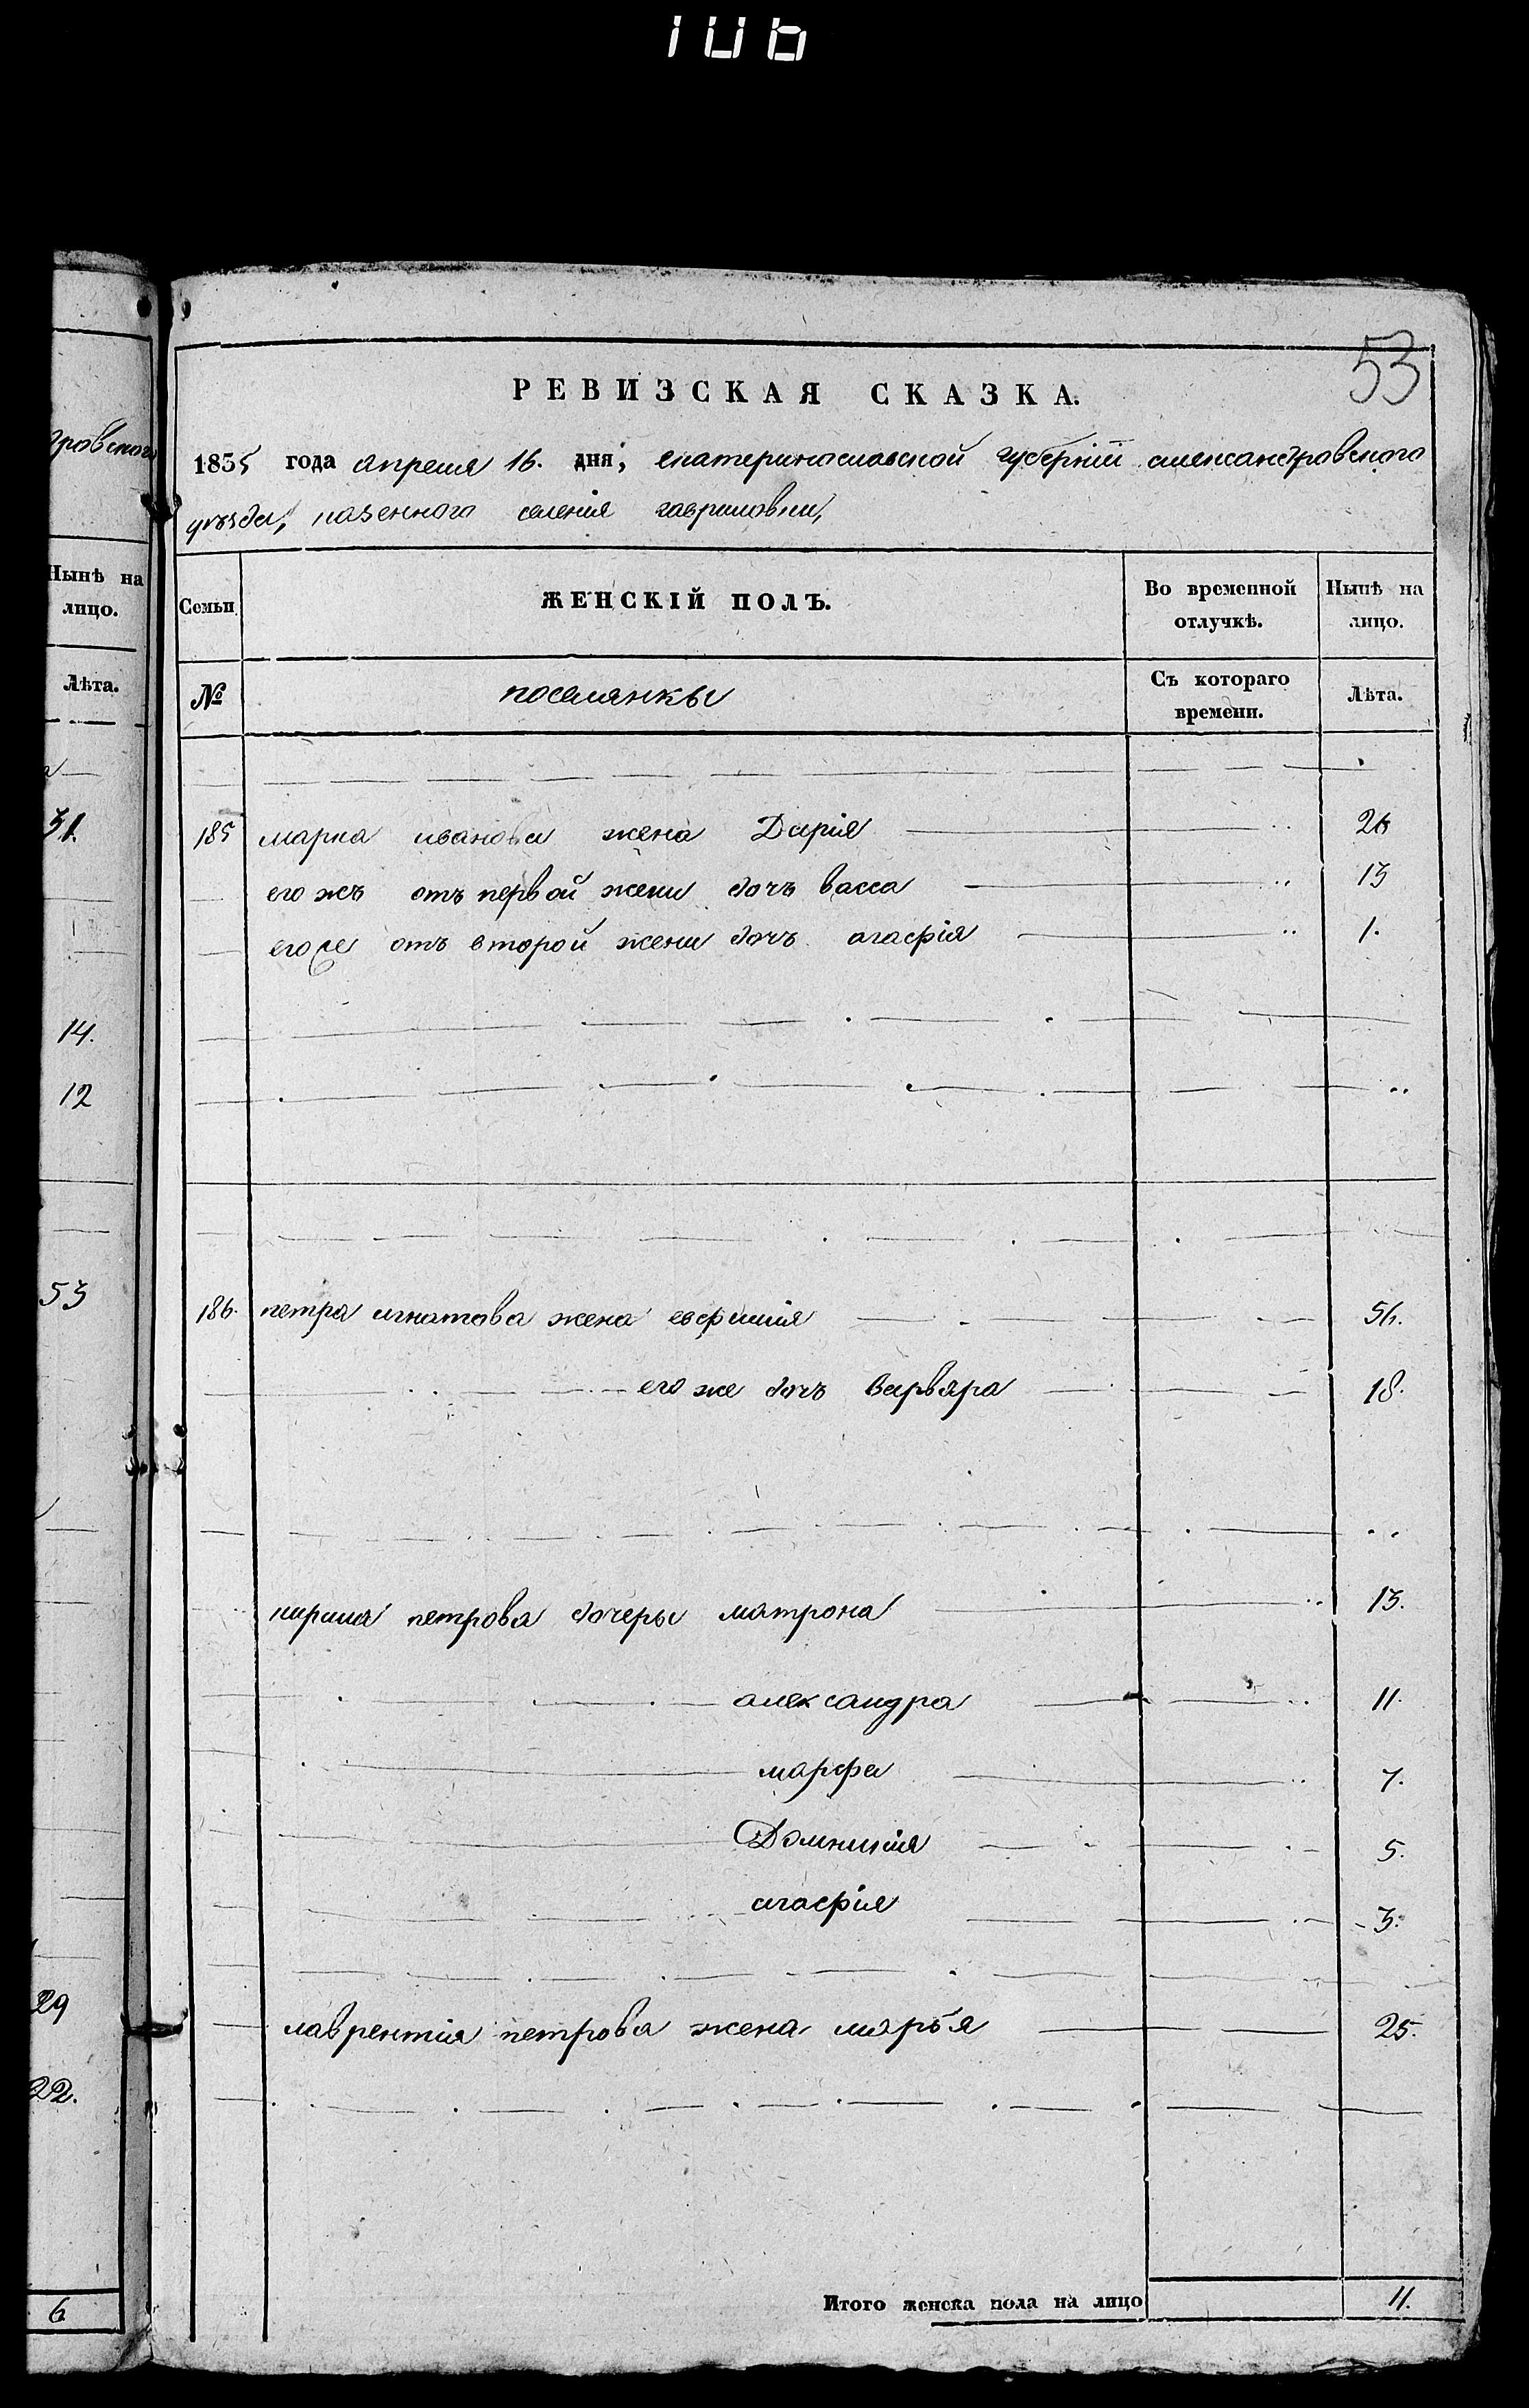 106
53
РЕВИЗСКАЯ СКАЗКА.
1835 года апреля 16. дня, екатеринославской губернiи александровского
уезда, казенного селенiя гавриловки,
Семьи
ЖЕНСКІЙ ПОЛЪ.
Во временной отлучкѣ.
Нынѣ на лицо.
№
поселянкы
Съ котораго времени.
Лѣта.
185 марка иванова жена Дарiя 26
его жъ отъ первой жени дочъ васса 13
его же отъ второй жени дочъ агафiя 1.
186. петра игнатова жена евфимiя 56.
его же дочъ варвара 18.
кирила петрова дочеры матрона 13.
александра 11.
марфа 7.
Домникiя 5.
агафiя 3.
лаврентiя петрова жена марья 25.
Итого женска пола на лицо 11.
тровского
Нынѣ на
лицо.
Лѣта.
31.
14.
12
53
29
22.
6